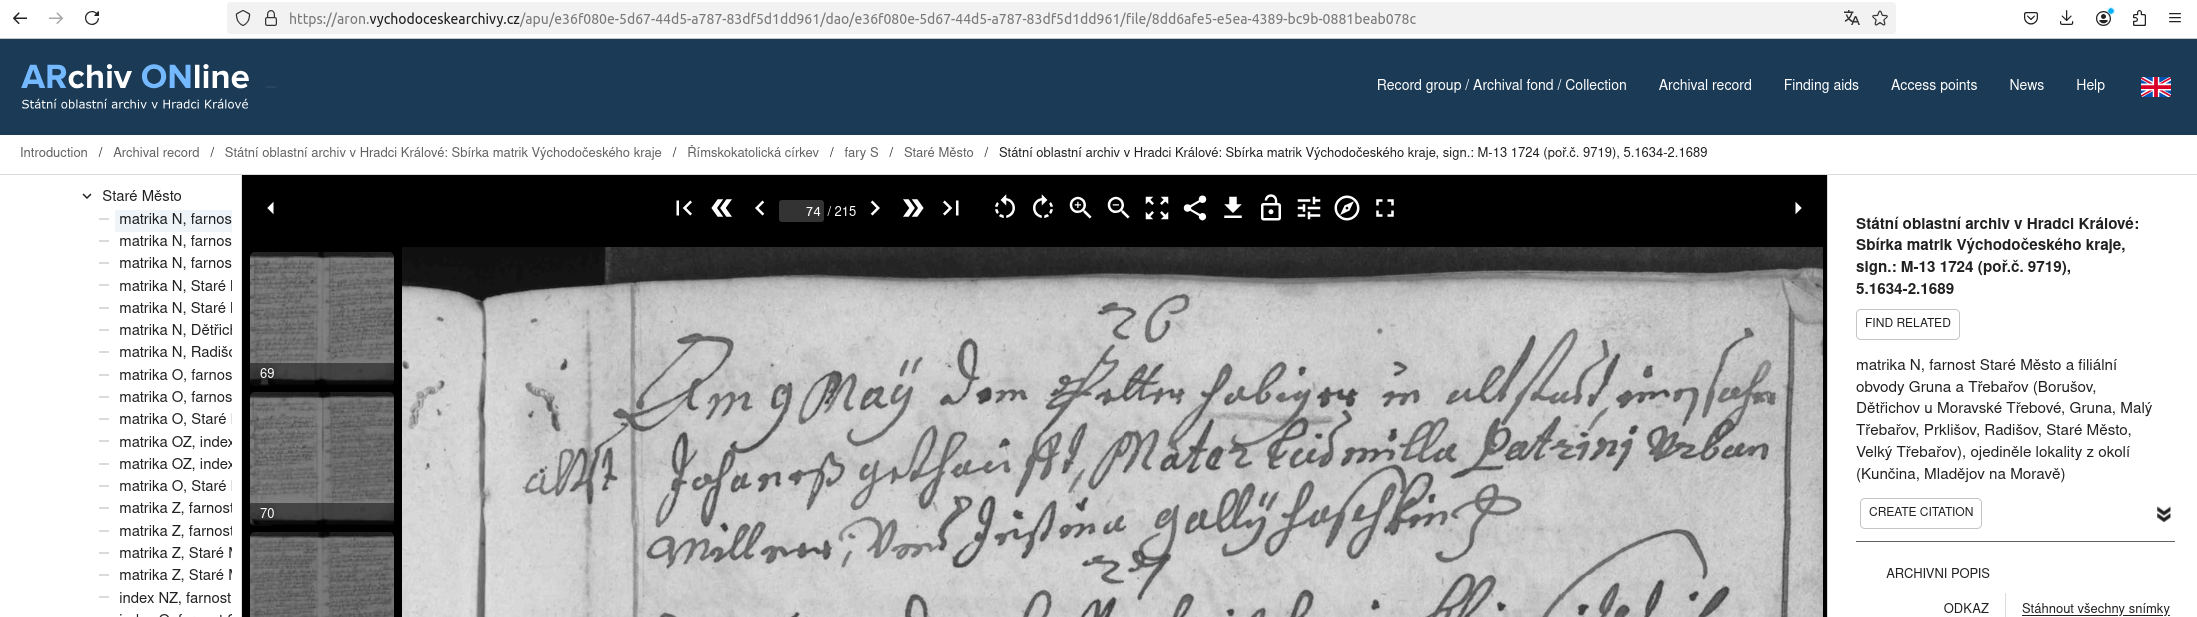 https://aron.vychodoceskearchivy.cz/apu/e36f080e-5d67-44d5-a787-83df5d1dd961/dao/e36f080e-5d67-44d5-a787-83df5d1dd961/file/8dd6afe5-e5ea-4389-bc9b-0881beab078c
ARchiv ONline
Státní oblastní archiv v Hradci Králové
Record group / Archival fond / Collection
Archival record
Finding aids
Access points
News
Help
Introduction / Archival record / Státní oblastní archiv v Hradci Králové: Sbírka matrik Východočeského kraje / Římskokatolická církev / fary S / Staré Město / Státní oblastní archiv v Hradci Králové: Sbírka matrik Východočeského kraje, sign.: M-13 1724 (poř.č. 9719), 5.1634-2.1689
Staré Město
matrika N, farnos
matrika N, farnos
matrika N, farnos
matrika N, Staré
matrika N, Staré
matrika N, Dětřich
matrika N, Radišo
matrika O, farnos
matrika O, farnos
matrika O, Staré
matrika OZ, index
matrika OZ, index
matrika O, Staré
matrika Z, farnost
matrika Z, farnost
matrika Z, Staré M
matrika Z, Staré M
index NZ, farnost
74 / 215
69
70
26
Am 9 Maÿ dem Petter habiger in altstadt, eines sohn
altst Johaness gethaufft, Mater Ludmilla Patrini Urban
Millner, Und Justina gallÿ haschkin
27
Státní oblastní archiv v Hradci Králové:
Sbírka matrik Východočeského kraje,
sign.: M-13 1724 (poř.č. 9719),
5.1634-2.1689
FIND RELATED
matrika N, farnost Staré Město a filiální
obvody Gruna a Třebařov (Borušov,
Dětřichov u Moravské Třebové, Gruna, Malý
Třebařov, Prklišov, Radišov, Staré Město,
Velký Třebařov), ojediněle lokality z okolí
(Kunčina, Mladějov na Moravě)
CREATE CITATION
ARCHIVNI POPIS
ODKAZ
Stáhnout všechny snímky